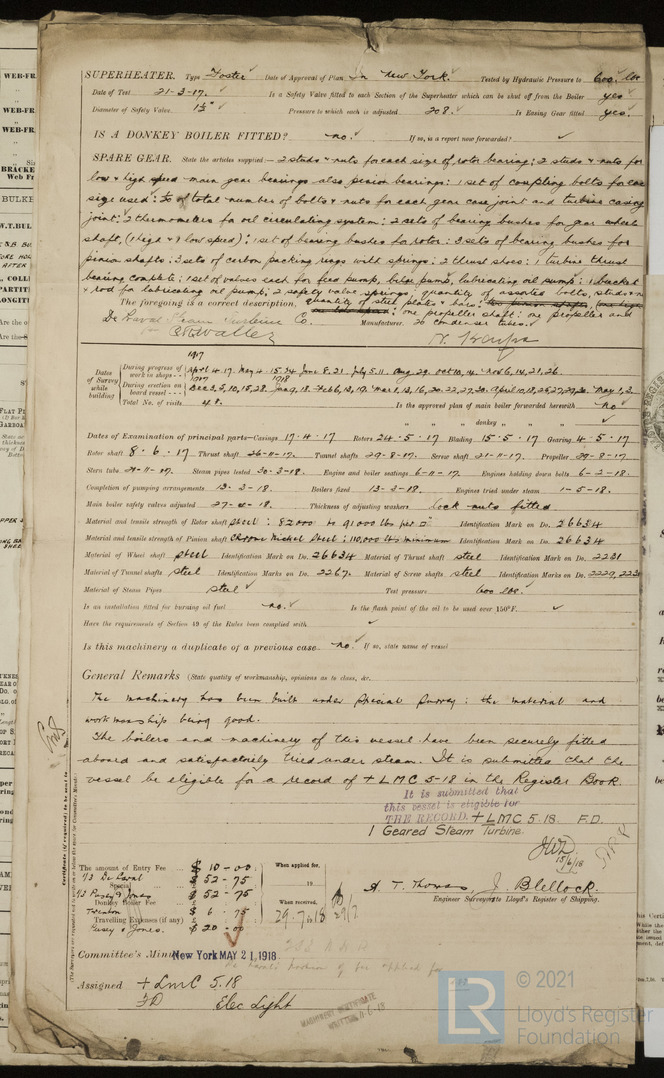 SUPERHEATER. Type Foster Date of Approval of Plan In New York. Tested by Hydraulic Pressure to 600 lbs
Date of Test 21-3-17. Is a Safety Valve fitted to each Section of the Superheater which can be shut off from the Boiler yes
Diameter of Safety Valve 1½" Pressure to which each is adjusted 208. Is Easing Gear fitted yes.
IS A DONKEY BOILER FITTED? no. If so, is a report now forwarded?
SPARE GEAR. State the articles supplied:— 2 studs & nuts for each size of rotor bearing: 2 studs & nuts for
low & high speed main gear bearings also pinion bearings: 1 set of coupling bolts for each
size used: of total number of bolts & nuts for each gear case joint and turbine casing
joint: 2 thermometers for oil circulating system: 2 sets of bearing bushes for gear wheel
shaft, (1 high & 1 low speed): 1 set of bearing bushes for rotor: 3 sets of bearing bushes for
pinion shafts: 3 sets of carbon packing rings with springs: 2 thrust shoes: 1 turbine thrust
bearing complete: 1 set of valves each for feed pump, bilge pump, lubricating oil pump: 1 bucket
& rod for lubricating oil pump: 2 safety valve springs: quantity of assorted bolts, studs &
The foregoing is a correct description, quantity of steel plates & bars: one propeller shaft: one propeller and
De Laval Steam Turbine Co. Manufacturer. 20 condenser tubes.
1917
Dates of Survey while building
During progress of work in shops - - April 4. 17. May 4. 15. 24 June 8. 21 July 5. 11. Aug 29. Oct 10, 14. Nov 6, 14, 21, 26.
1917 1918
During erection on board vessel - - - Dec 3, 5, 10, 15, 28. Jan 9, 18. Feb 6, 13, 19. Mar 1, 13, 16, 20, 22, 27, 30. April 10, 18, 25, 27, 29, 30. May 1, 2.
Total No. of visits 48. Is the approved plan of main boiler forwarded herewith no
" " " donkey " "
Dates of Examination of principal parts—Casings 17-4-17 Rotors 24-5-17 Blading 15-5-17 Gearing 4-5-17
Rotor shaft 8-6-17 Thrust 26-11-17. Tunnel shafts 29-8-17. Screw shaft 21-11-17. Propeller 29-8-17
Stern tube 24-11-17. Steam pipes tested 30-3-18. Engine and boiler seatings 6-11-17. Engines holding down bolts 6-2-18.
Completion of pumping arrangements 13-3-18. Boilers fixed 13-2-18. Engines tried under steam 1-5-18.
Main boiler safety valves adjusted 27-4-18. Thickness of adjusting washers lock nuts fitted
Material and tensile strength of Rotor shaft Steel: 82000 to 91000 lbs per □" Identification Mark on Do. 26634
Material and tensile strength of Pinion shaft Chrome Nickel Steel: 110,000 lbs minimum Identification Mark on Do. 26634
Material of Wheel shaft steel Identification Mark on Do. 26634 Material of Thrust shaft steel Identification Mark on Do. 2231
Material of Tunnel shafts steel Identification Marks on Do. 2267. Material of Screw shafts steel Identification Marks on Do. 2229, 2230
Material of Steam Pipes steel Test pressure 600 lbs.
Is an installation fitted for burning oil fuel no. Is the flash point of the oil to be used over 150°F.
Have the requirements of Section 49 of the Rules been complied with
Is this machinery a duplicate of a previous case no. If so, state name of vessel
General Remarks (State quality of workmanship, opinions as to class, &c.
The machinery has been built under special survey: the material and
workmanship being good.
The boilers and machinery of this vessel have been securely fitted
aboard and satisfactorily tried under steam. It is submitted that the
vessel be eligible for a record of + LMC 5-18 in the Register Book.
It is submitted that
this vessel is eligible for
THE RECORD. + LMC 5.18. F.D.
1 Geared Steam Turbine.
15/6/18
The amount of Entry Fee ... $ 10-00 When applied for,
1/3 De Laval
Special ... $ 52-75 19
2/3 Pusey & Jones $ 52-75
Donkey Boiler Fee
Trenton $ 6.75 When received,
Travelling Expenses (if any) 29.7.18
Pusey & Jones. $ 20.00
A. T. Thomas, J. Blellock.
Engineer Surveyors to Lloyd's Register of Shipping.
Committee's Minute New York MAY 21, 1918
Assigned + LMC 5.18
FD Elec Light
MACHINERY CERTIFICATE
WRITTEN
LR
© 2021
Lloyd's Register
Foundation